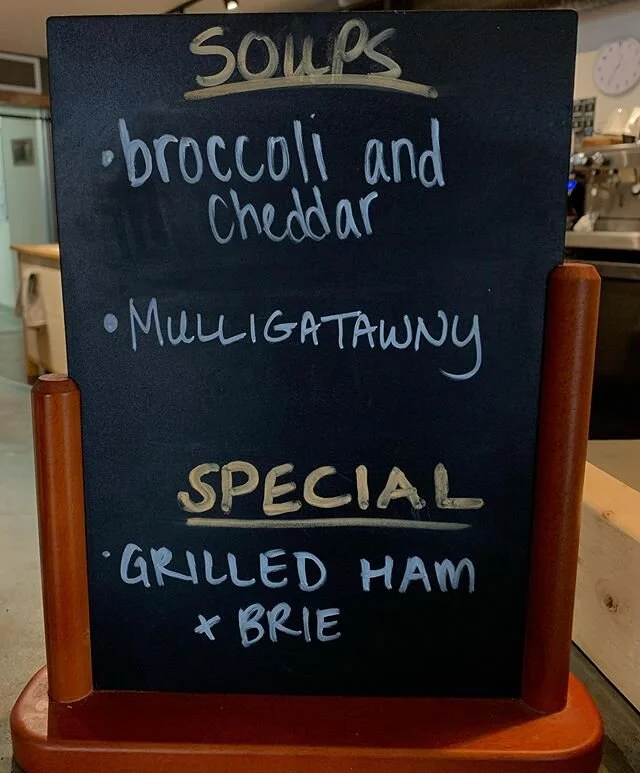 SOUPS
• broccoli and
cheddar
• MULLIGATAWNY
SPECIAL
• GRILLED HAM
+ BRIE